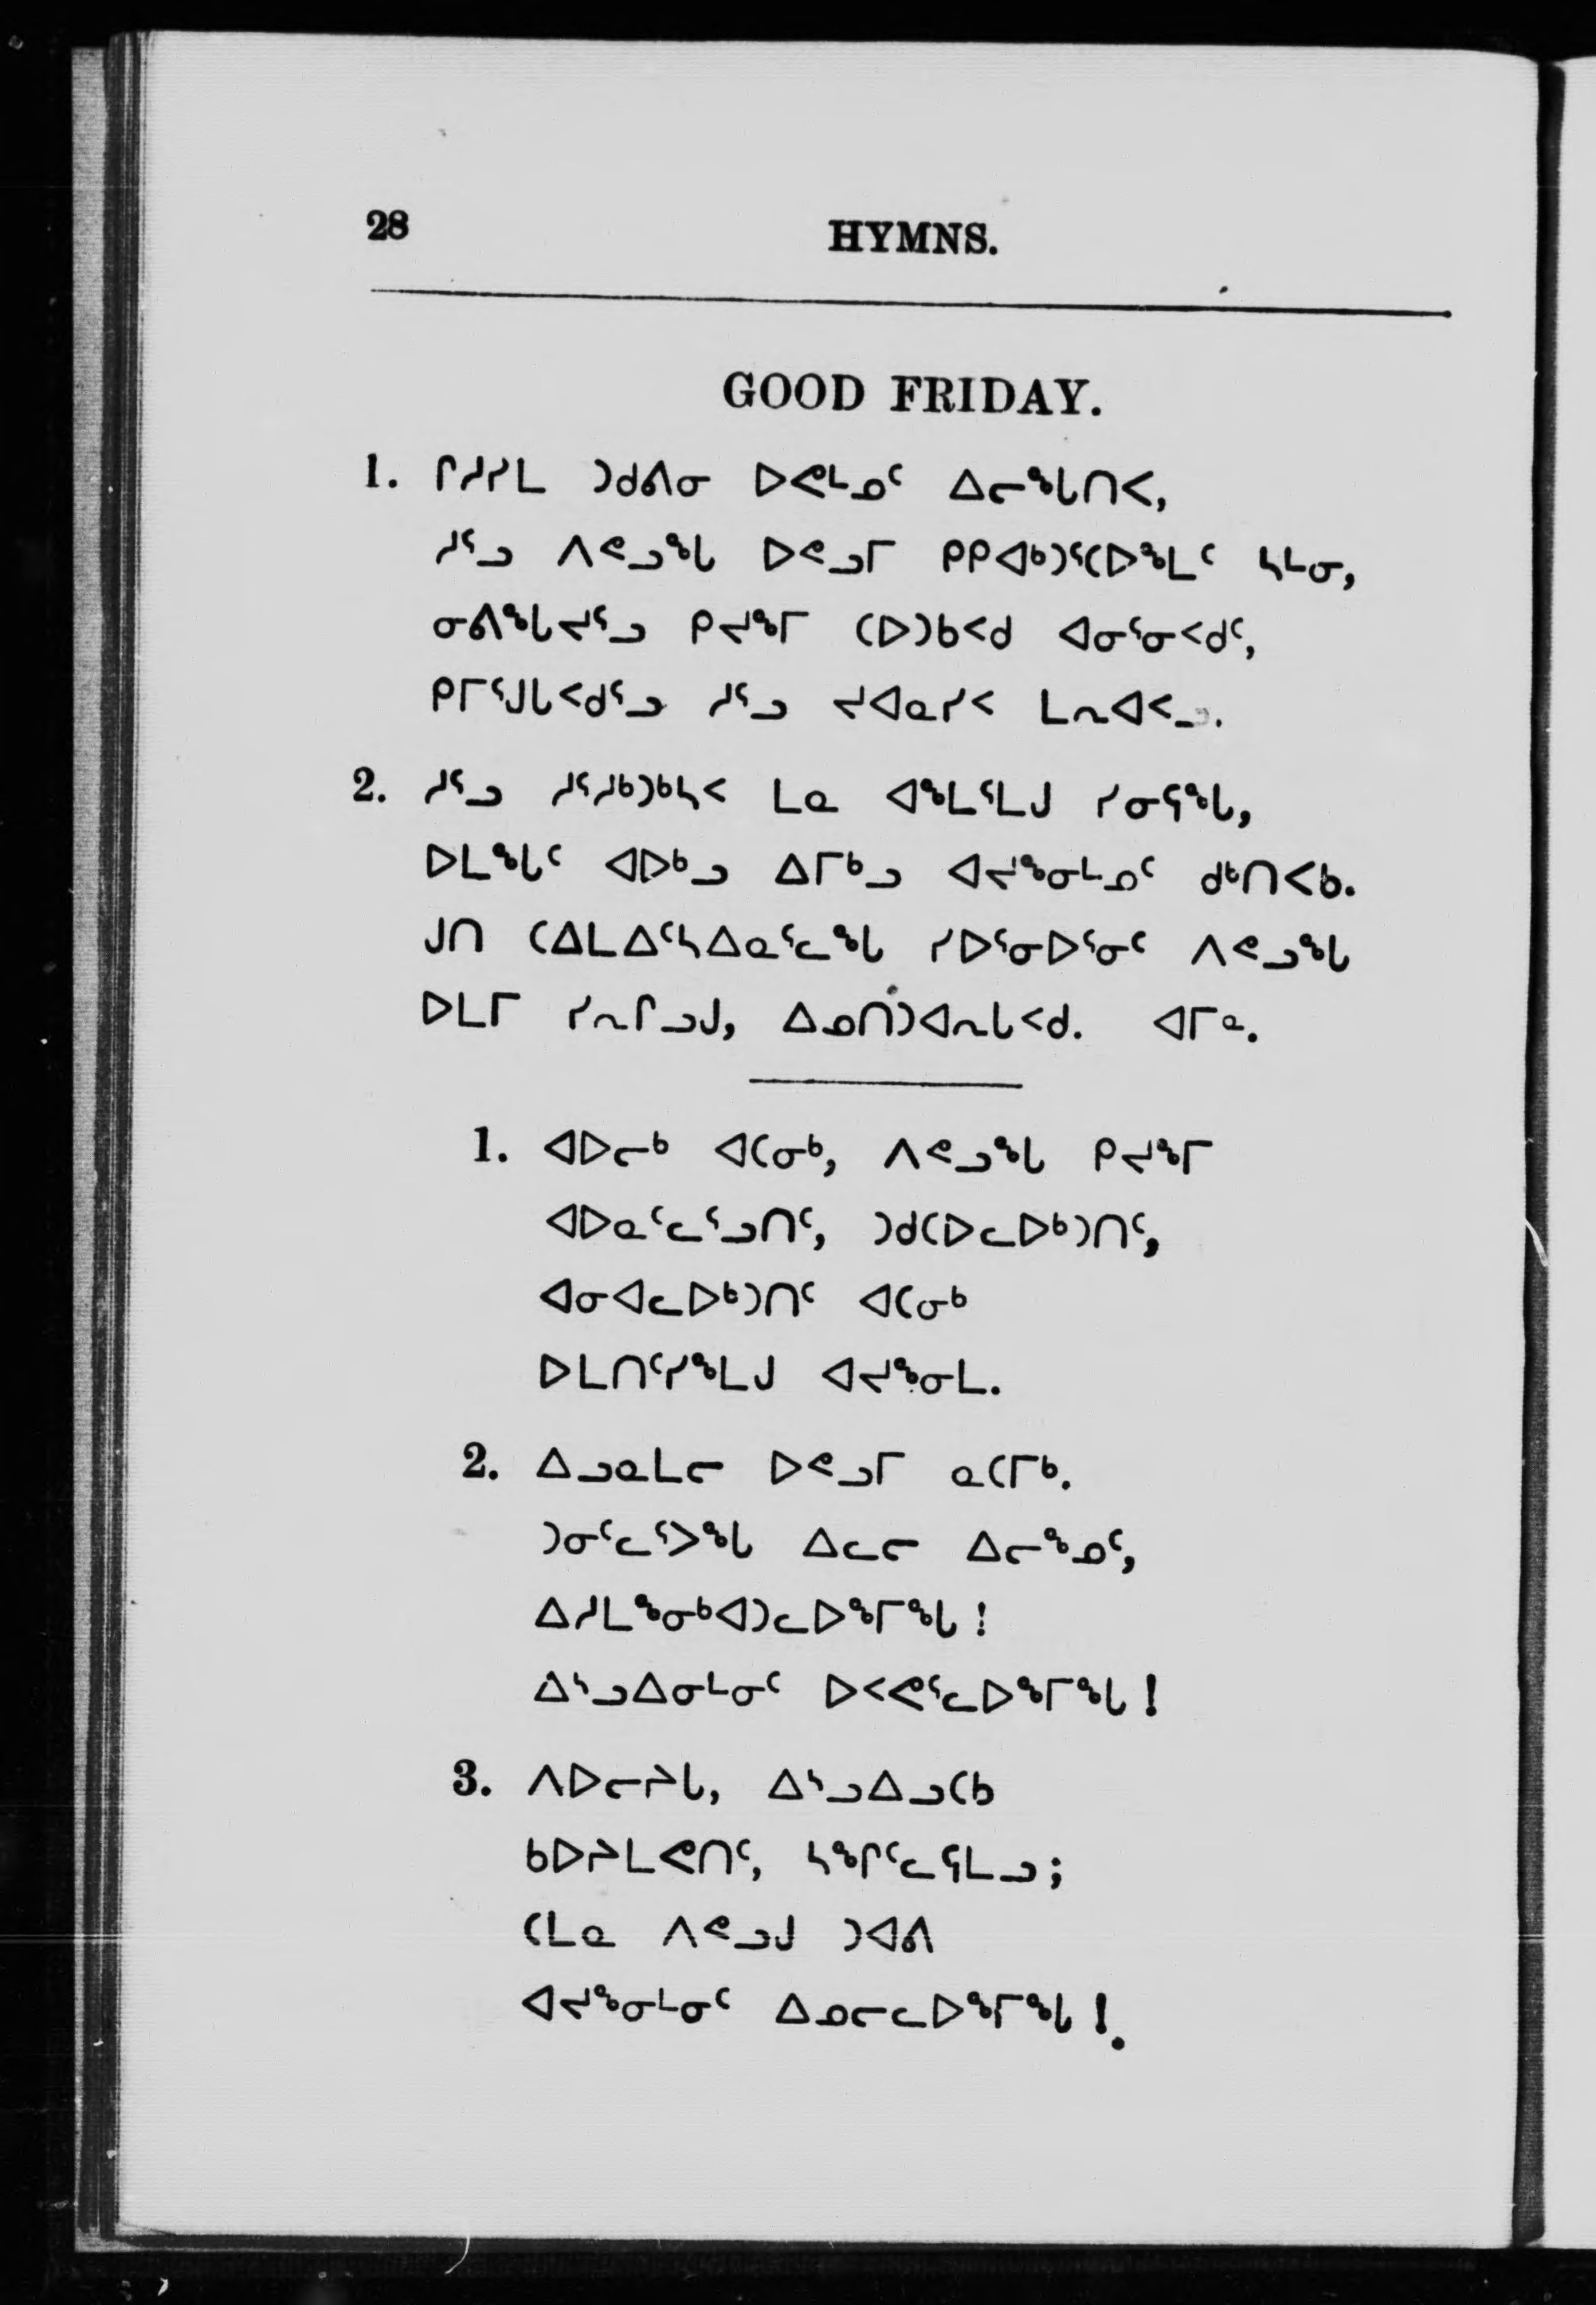 28
HYMNS.
GOOD FRIDAY.
1. ᒋᓱᓯᒪ ᑐᑯᕕᓂ ᐅᕙᒻᓄᑦ ᐃᓕᖓᑎᐸ,
ᓱᕐᓗ ᐱᕝᓗᖓ ᐅᕝᓗᒥ ᑭᑭᐊᒃᑐᕐᑕᐅᖕᒪᑦ ᓴᒻᓂ,
ᓂᕕᖓᔪᕐᓗ ᑭᔪᖕᒥ ᑕᐅᑐᑲᑉᑯ ᐊᓂᕐᓂᑉᑯᑦ,
ᑭᒥᕐᒍᒐᑉᑯᕐᓗ ᓱᕐᓗ ᔪᐊᓇᓯᑉ ᒪᕆᐊᑉᓗ.
2. ᓱᕐᓗ ᓱᕐᓱᒃᑐᒃᓴᑉ ᒪᓇ ᐊᖕᒪᕐᒪᒍ ᓯᓂᕋᖓ,
ᐅᒪᖓᑦ ᐊᐅᒃᓗ ᐃᒥᒃᓗ ᐊᔪᖕᓂᒻᓄᑦ ᑯᒃᑎᐸᑲ.
ᒍᑎ ᑕᐃᒪᐃᑦᓴᐃᓇᕐᓚᖓ ᓯᐅᕐᓂᐅᕐᓂᑦ ᐱᕝᓗᖓ
ᐅᒪᒥ ᓯᕆᒋᓗᒍ, ᐃᓄᑎᑐᐊᕆᒐᑉᑯ. ᐊᒥᓐ.
1. ᐊᐅᓕᒃ ᐊᑕᓂᒃ, ᐱᕝᓗᖓ ᑭᔪᖕᒥ
ᐊᐅᓇᑦᓚᕐᓗᑎᑦ, ᑐᑯᑕᐅᓚᐅᒃᑐᑎᑦ,
ᐊᓂᐊᓚᐅᒃᑐᑎᑦ ᐊᑕᓂᒃ
ᐅᒪᑎᑦᓯᖕᒪᒍ ᐊᔪᖕᓂᒪ.
2. ᐃᓗᓇᒪᓕ ᐅᕝᓗᒥ ᓇᑕᒥᒃ.
ᑐᓂᑦᓚᕐᐳᖓ ᐃᓚᓕ ᐃᓕᖕᓄᑦ,
ᐃᓱᒪᖕᓂᒃᐊᑐᓚᐅᖕᒥᖓ!
ᐃᔅᓗᐃᓂᒻᓂᑦ ᐅᐸᕙᕐᓚᐅᖕᒥᖓ!
3. ᐱᐅᓕᔨᒐ, ᐃᔅᓗᐃᓗᑕᑲ
ᑲᐅᔨᒪᕙᑎᑦ, ᓴᖕᒋᑦᓚᕋᒪᓗ;
ᑕᒪᓇ ᐱᕝᓗᒍ ᑐᐊᕕ
ᐊᔪᖕᓂᒻᓂᑦ ᐃᓄᓕᓚᐅᖕᒥᖓ!